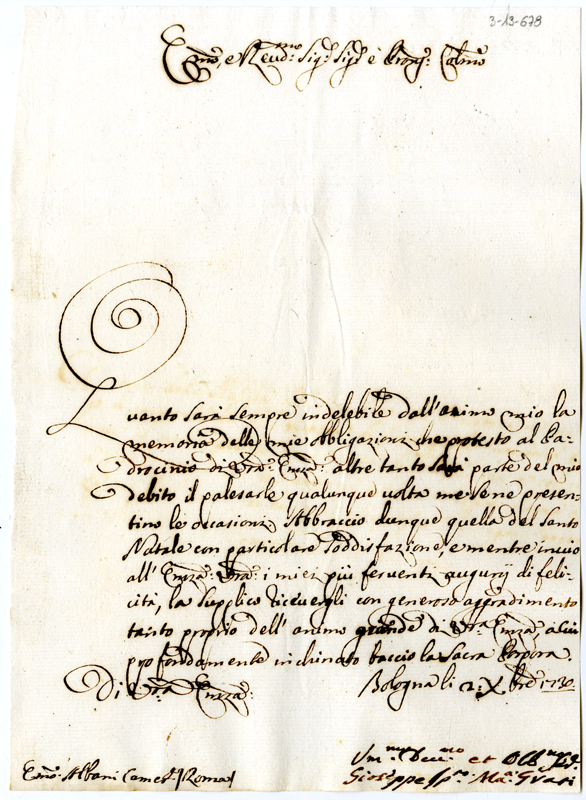 3-13-678
Emo, e Reudmo: Sigr Sigr e Pronj: Colmo
Quanto sarà sempre indelebile dall'animo mio la
memoria delle mie obbligazioni che protesto al Pa-
drocinio di Vra: Emza: altre tanto sarà parte del mio
debito il palesarle qualunque volta me se ne presen-
tino le occasioni. Abbraccio dunque quella del Santo
Natale con particolare soddisfazione, e mentre inuio
all'Emza: Vra: i miei più feruenti augurij di feli-
cità, la supplico riceuergli con generoso aggradimento
tanto proprio dell'animo grande di Vra Emza, a cui
profondamente inchinato baccio la Sacra Porpora.
Di Vra Emza: Bologna li 2: Xbre 1730
Vmo Deumo et Obb
Emo: Albani Camerl: Roma Giuseppe Ma: Grati